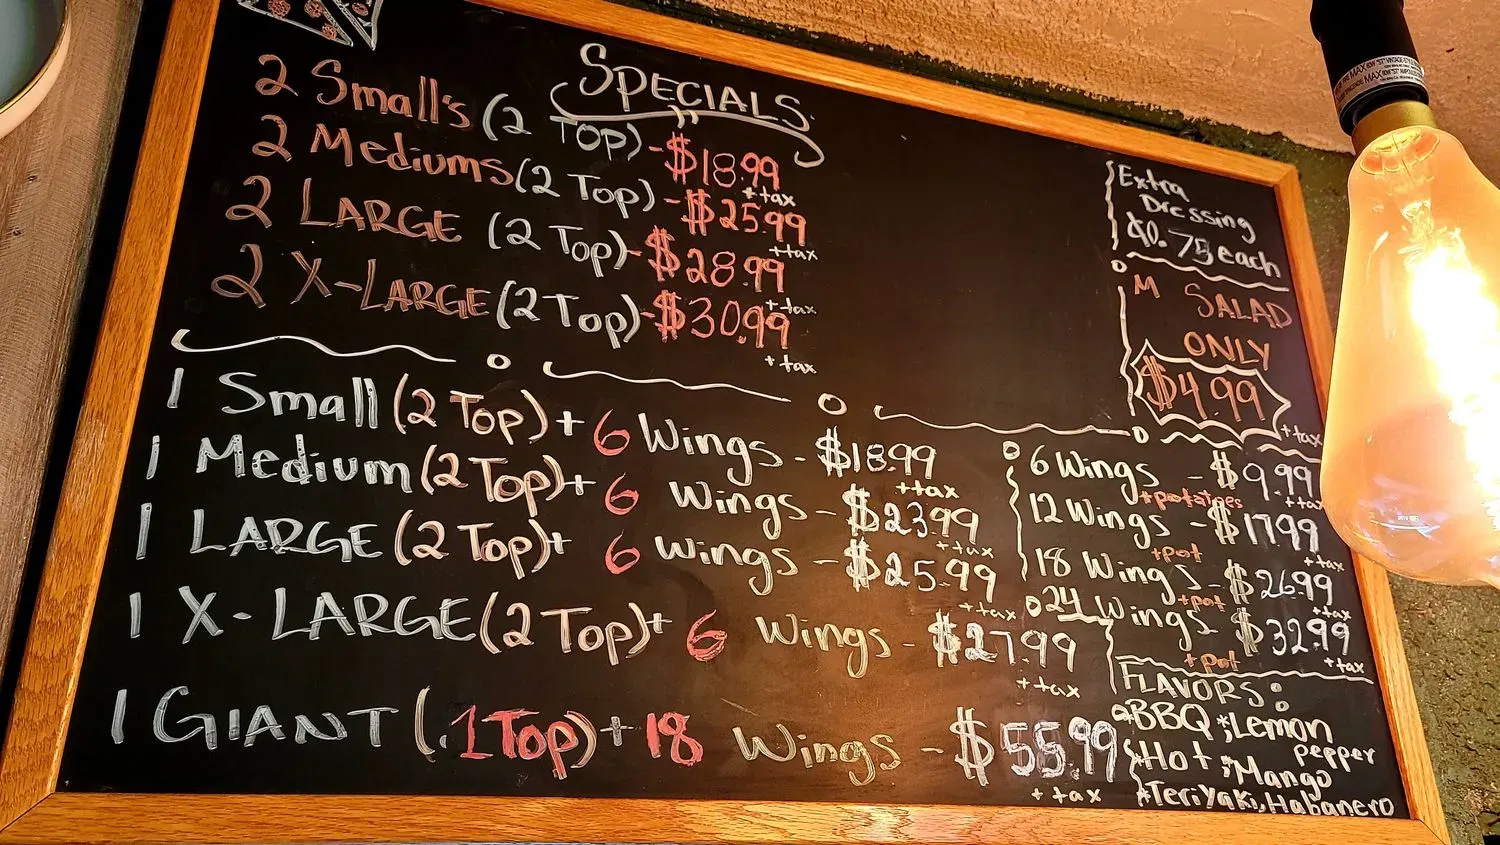 SPECIALS
2 Small's (2 TOP) - $18.99
+ tax
2 Mediums (2 Top) - $25.99
+tax
2 LARGE (2 Top) - $28.99
+tax
2 X-LARGE (2 Top) - $30.99
+ tax
1 Small (2 Top) + 6 Wings - $18.99
+tax
1 Medium (2 Top) + 6 Wings - $23.99
+tax
1 LARGE (2 Top) + 6 Wings - $25.99
+tax
1 X-LARGE (2 Top) + 6 Wings - $27.99
+ tax
1 GIANT (1 Top) + 18 Wings - $55.99
+ tax
Extra
Dressing
$0.75 each
M SALAD
ONLY
$4.99
+tax
6 Wings - $9.99
+potatoes +tax
12 Wings - $17.99
+pot +tax
18 Wings - $26.99
+pot +tax
24 Wings $32.99
+pot +tax
FLAVORS:
*BBQ *Lemon
pepper
*Hot *Mango
*TeriYaki, Habanero